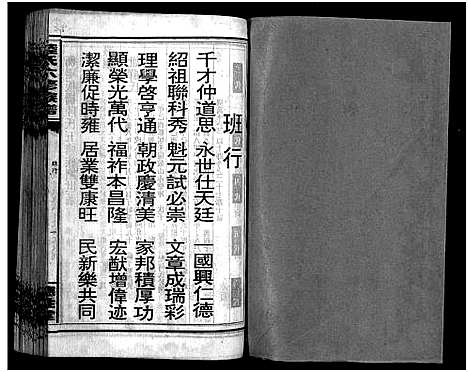 班行
千才仲道思 永世仕天廷 國興仁德
紹祖聯科秀 魁元試必崇 文章成瑞彩
理學啓亨通 朝政慶清美 家邦積厚功
顯榮光萬代 福祚本昌隆 宏猷增偉迹
潔廉促時雍 居業雙康旺 民新樂共同